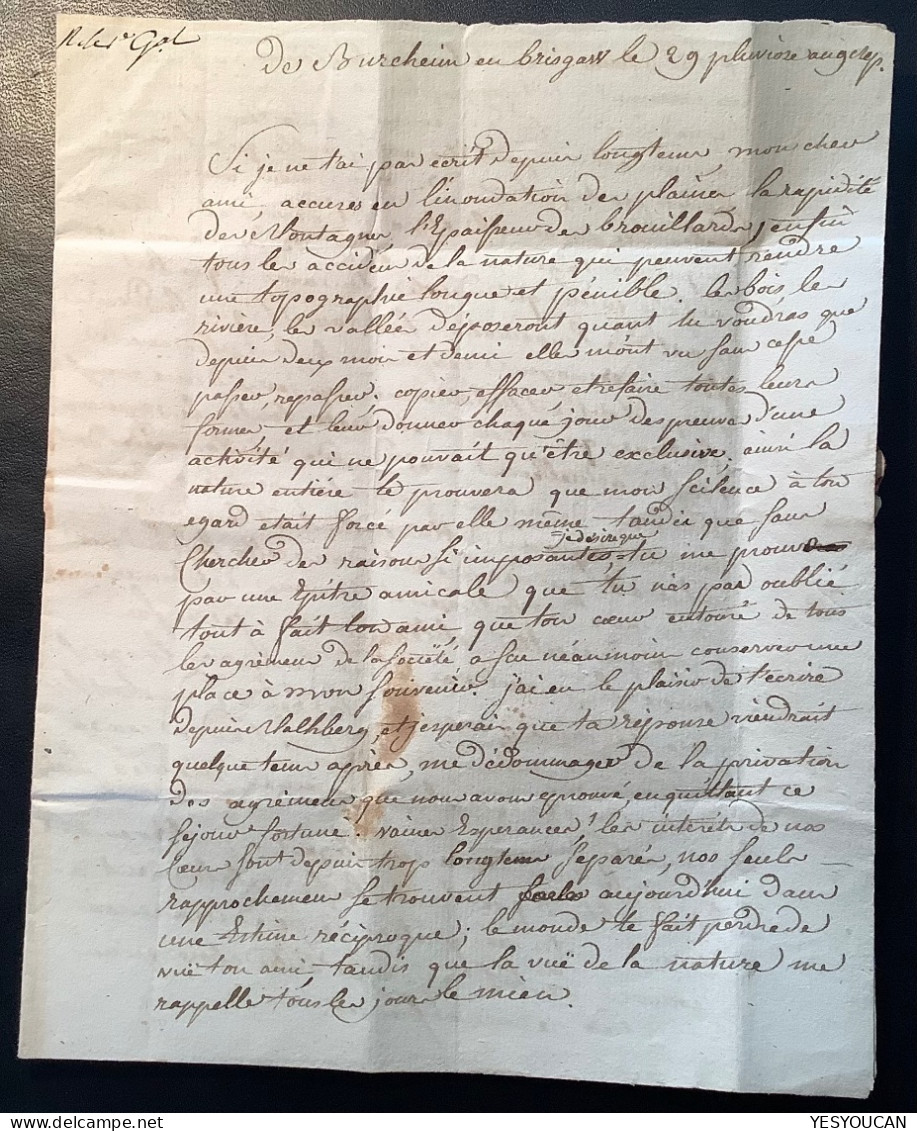 De Burcheim en brisgaw le 29 pluviose an 9 rep.
Si je ne t'ai pas écrit depuis longtems, mon cher
ami, accuses en l'inondation des plaines la rapidité
des Montagnes, l'Epaisseur des brouillards, enfin
tous les accidens de la nature qui peuvent rendre
une topographie longue et pénible. les bois les
rivière, les vallées déposeront quant tu voudras que
depuis deux mois et demi elle m'ont vu sans cesse
passer, repasser. copier, effacer et refaire toutes leurs
formes et leur donner chaque jour des preuves d'une
activité qui ne pouvait qu'être exclusive. ainsi la
nature entière te prouvera que mon scilence à ton
egard était forcé par elle même tandis que sans
je desire que
Chercher des raisons si imposantes tu me prouves
par une Epitre amicale que tu n'as pas oublié
tout à fait ton ami que ton cœur entouré de tous
les agrèmens de la Société, a su néanmoins conserver une
place à mon souvenir. j'ai eu le plaisir de t'ecrire
depuis, et j'esperais que ta réponse viendrait
quelque tems après, me dédommager de la privation
des agrèmens que nous avons eprouvé, en quittant ce
séjour fortuné. vaines Esperances! les intérêts de nos
Cœurs sont depuis trop longtems séparés, nos seuls
rapprochemens se trouvent seuls aujourd'hui dans
une Estime réciproque; le monde te fait perdre de
vuë ton ami tandis que la vuë de la nature me
rappelle tous les jours le mien.
YESYOUCAN